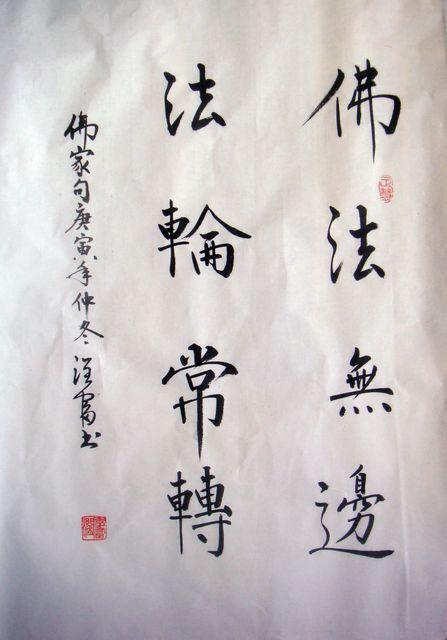 佛法無邊
法輪常轉
佛家句庚寅年仲冬汪富书